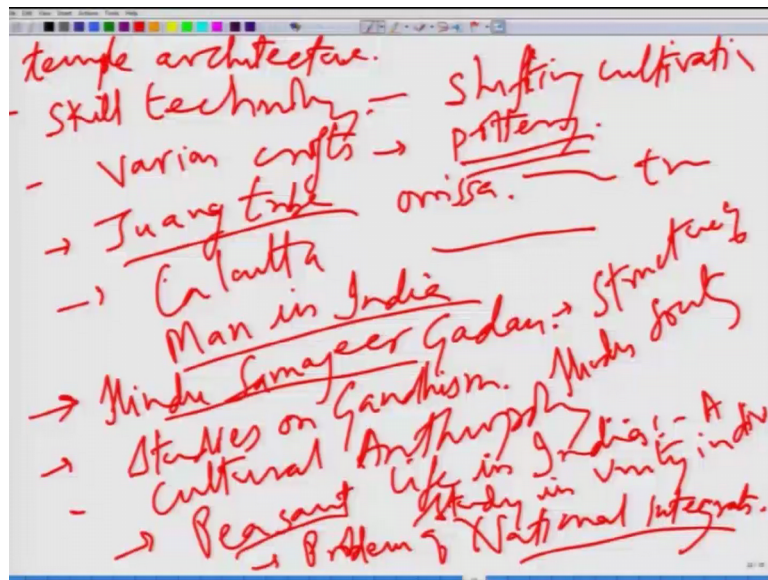 temple architecture.
- Skill technology - shifting cultivati
- Varian crafts → pottery.
→ Juang tribe orissa.
→ Calcutta
Man in India
→ Hindu Samajeer Gadan → Structure of Hindu Society
→ Studies on Gandhism.
- Cultural Anthropology
→ Peasant life in India: - A Study in Unity
→ Problem of National Integrat.